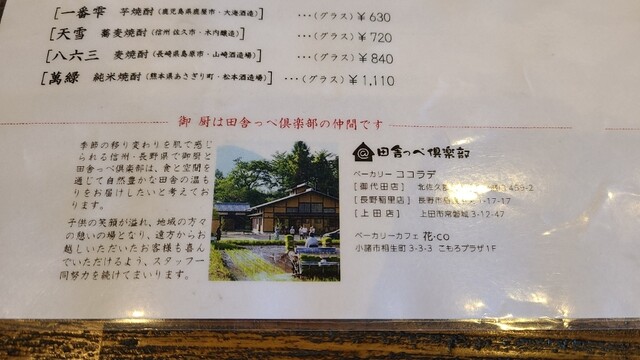 [一番雫 芋焼酎(鹿児島県鹿屋市・大海酒造)] …(グラス)￥630
[天雪 蕎麦焼酎(信州 佐久市・木内醸造)] …(グラス)￥720
[八六三 麦焼酎(長崎県島原市・山崎酒造場)] …(グラス)￥840
[萬緑 純米焼酎(熊本県あさぎり町・松本酒造場)] …(グラス)￥1,110
御 厨は田舎っぺ倶楽部の仲間です
季節の移り変わりを肌で感じ
られる信州・長野県で御厨と
田舎っぺ倶楽部は、食と空間を
通じて自然豊かな田舎の温も
りをお届けしたいと考えてお
ります。
子供の笑顔が溢れ、地域の方々
の憩いの場となり、遠方からお
越しいただいたお客様も喜ん
でいただけるよう、スタッフ一
同努力を続けてまいります。
@田舎っぺ倶楽部
ベーカリー ココラデ
[御代田店] 北佐久郡
[長野稲里店] 長野市
[上田店] 上田市常磐城 3-12-47
ベーカリーカフェ 花・co
小諸市相生町 3-3-3 こもろプラザ 1F